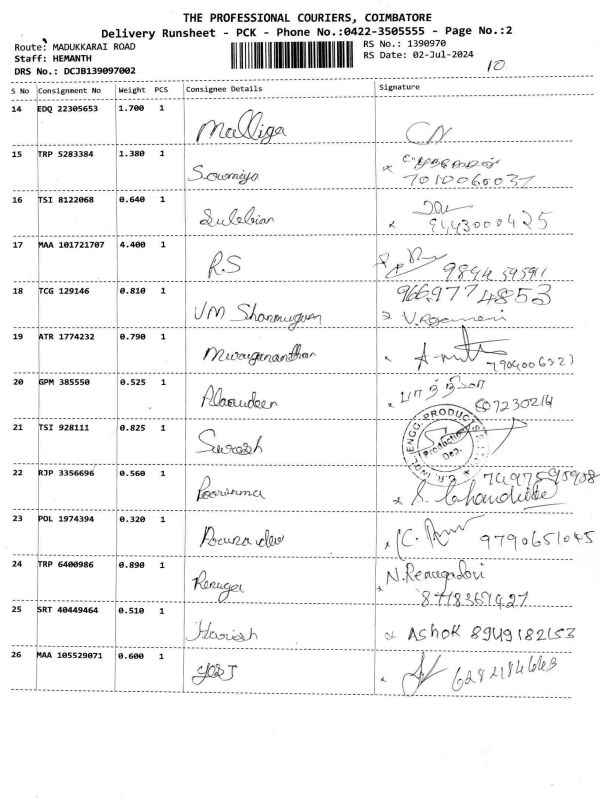 THE PROFESSIONAL COURIERS, COIMBATORE
Delivery Runsheet - PCK - Phone No.:0422-3505555 - Page No.:2
Route: MADUKKARAI ROAD
RS No.: 1390970
Staff: HEMANTH
RS Date: 02-Jul-2024
DRS No.: DCJB139097002
10
S No Consignment No Weight PCS Consignee Details Signature
14 EDQ 22305653 1.700 1 Malliga
15 TRP 5283384 1.380 1 Sowmiya
7010060037
16 TSI 8122068 0.640 1
9443000425
17 MAA 101721707 4.400 1 R.S
18 TCG 129146 0.810 1 VM Shanmugam
9669774853
19 ATR 1774232 0.790 1 Murugananthan
20 GPM 385550 0.525 1 Alaoudeen
21 TSI 928111 0.825 1 Suresh
ENGG. PRODUCTS
Production
Dep.
22 RJP 3356696 0.560 1 Poornima
23 POL 1974394 0.320 1
9790651045
24 TRP 6400986 0.890 1 Renuga N.Renugadevi
8778367427
25 SRT 40449464 0.510 1 Harish ASHOK 8949182153
26 MAA 105529071 0.600 1